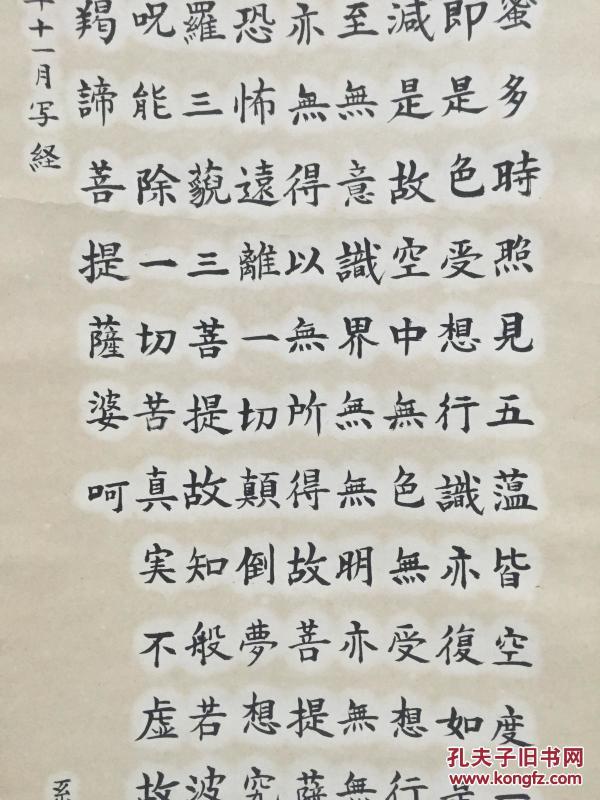 蜜多時照見五薀皆空度一
即是色受想行識亦復如是
減是故空中無色無受想行
至無意識界無無明亦無無
亦無得以無所得故菩提薩
恐怖遠離一切顛倒夢想究
羅三藐三菩提故知般若波
呪能除一切苦真実不虚故
羯諦菩提薩婆呵
年十一月写経
孔夫子旧书网
www.kongfz.com